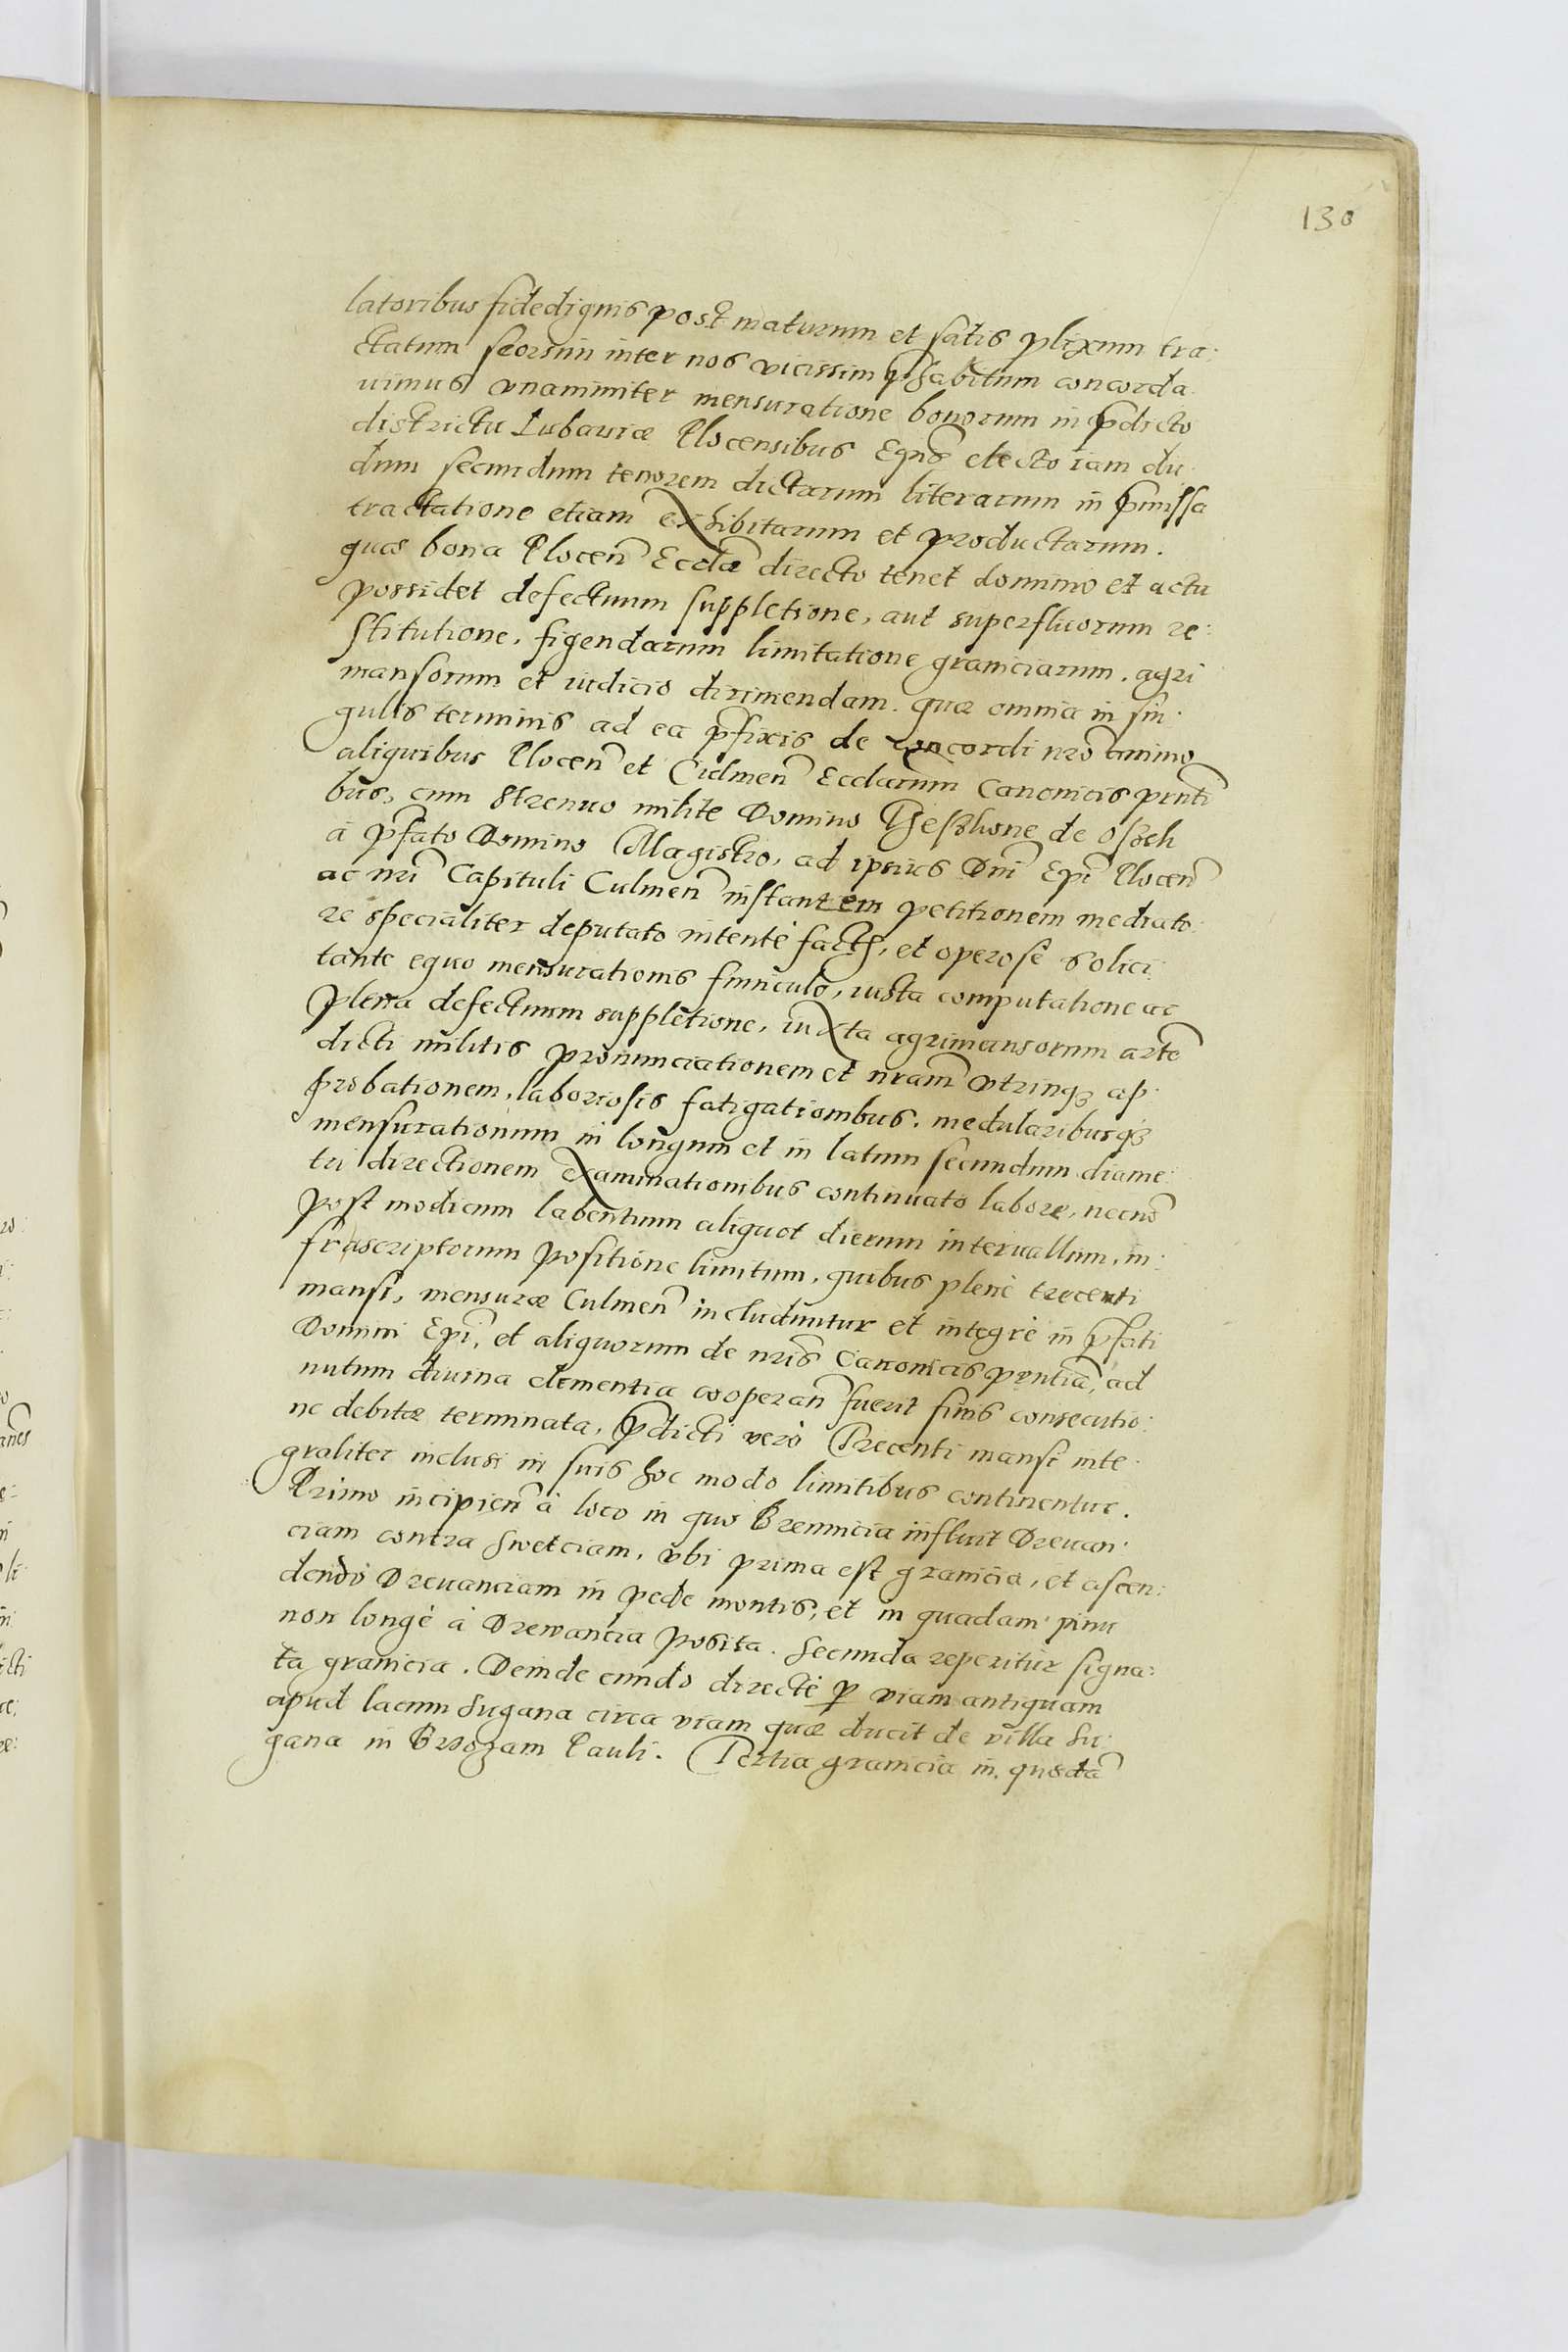 130
latoribus fidedignis post maturum et satis plixum tra:
ctatum seorsim inter nos vicissim phabitum concorda:
uimus vnanimiter mensuratione bonorum in pdicto
districtu Lubauiæ Plocensibus Epis electo iam du:
dum secundum tenorem dictarum literarum in pmissa
tractatione etiam exhibitarum et productarum.
quæ bona Plocen Eccla directo tenet dominio et actu
possidet defectuum suppletione, aut superfluorum re:
stitutione, figendarum limitatione graniciarum, agri
mansorum et iudicio dirimendam. quæ omnia in sin:
gulis terminis ad ea pfixis de concordi nro animo
aliquibus Plocen et Culmen Ecclarum Canonicis pnti
bus, cum strenuo milite Domino de
à pfato Domino Magistro, ad ipsius Dni Epi Plocen
ac nri Capituli Culmen instantem petitionem mediato:
re specialiter deputato intentè et operosè solici:
tante equo mensurationis funiculo, iusta computatione ac
plena defectuum suppletione, iuxta agrimensorum arte
dicti militis pronunciationem et nram vtrinqȝ ap:
probationem, laboriosis fatigationibus, medularibusqȝ
mensurationum in longum et in latum secundum diame:
tri directionem examinationibus continuato labore, necno
post modicum labentium aliquot dierum interuallum, in:
frascriptorum positione limitum, quibus plenè trecenti
mansi, mensuræ Culmen includuntur et integrè in pfati
Domini Epi, et aliquorum de nris Canonicis pntia, ad
nutum diuina clementia cooperan fuerit finis consecutio:
ne debitæ terminata, pdicti verò Trecenti mansi inte:
graliter inclusi in suis hoc modo limitibus continentur.
Primo incipien à loco in quo Brennicia influit Dreuan:
ciam contra Swetciam, vbi prima est granicia, et ascen:
dendo Dreuanciam in pede montis, et in quadam pinu
non longè à Drewancia posita. Secunda reperitur signa:
ta granicia. Deinde eundo directè p viam antiquam
apud lacum Sugana circa viam quæ ducit de villa Su:
gana in Brzozam Pauli. Tertia granicia in quoda